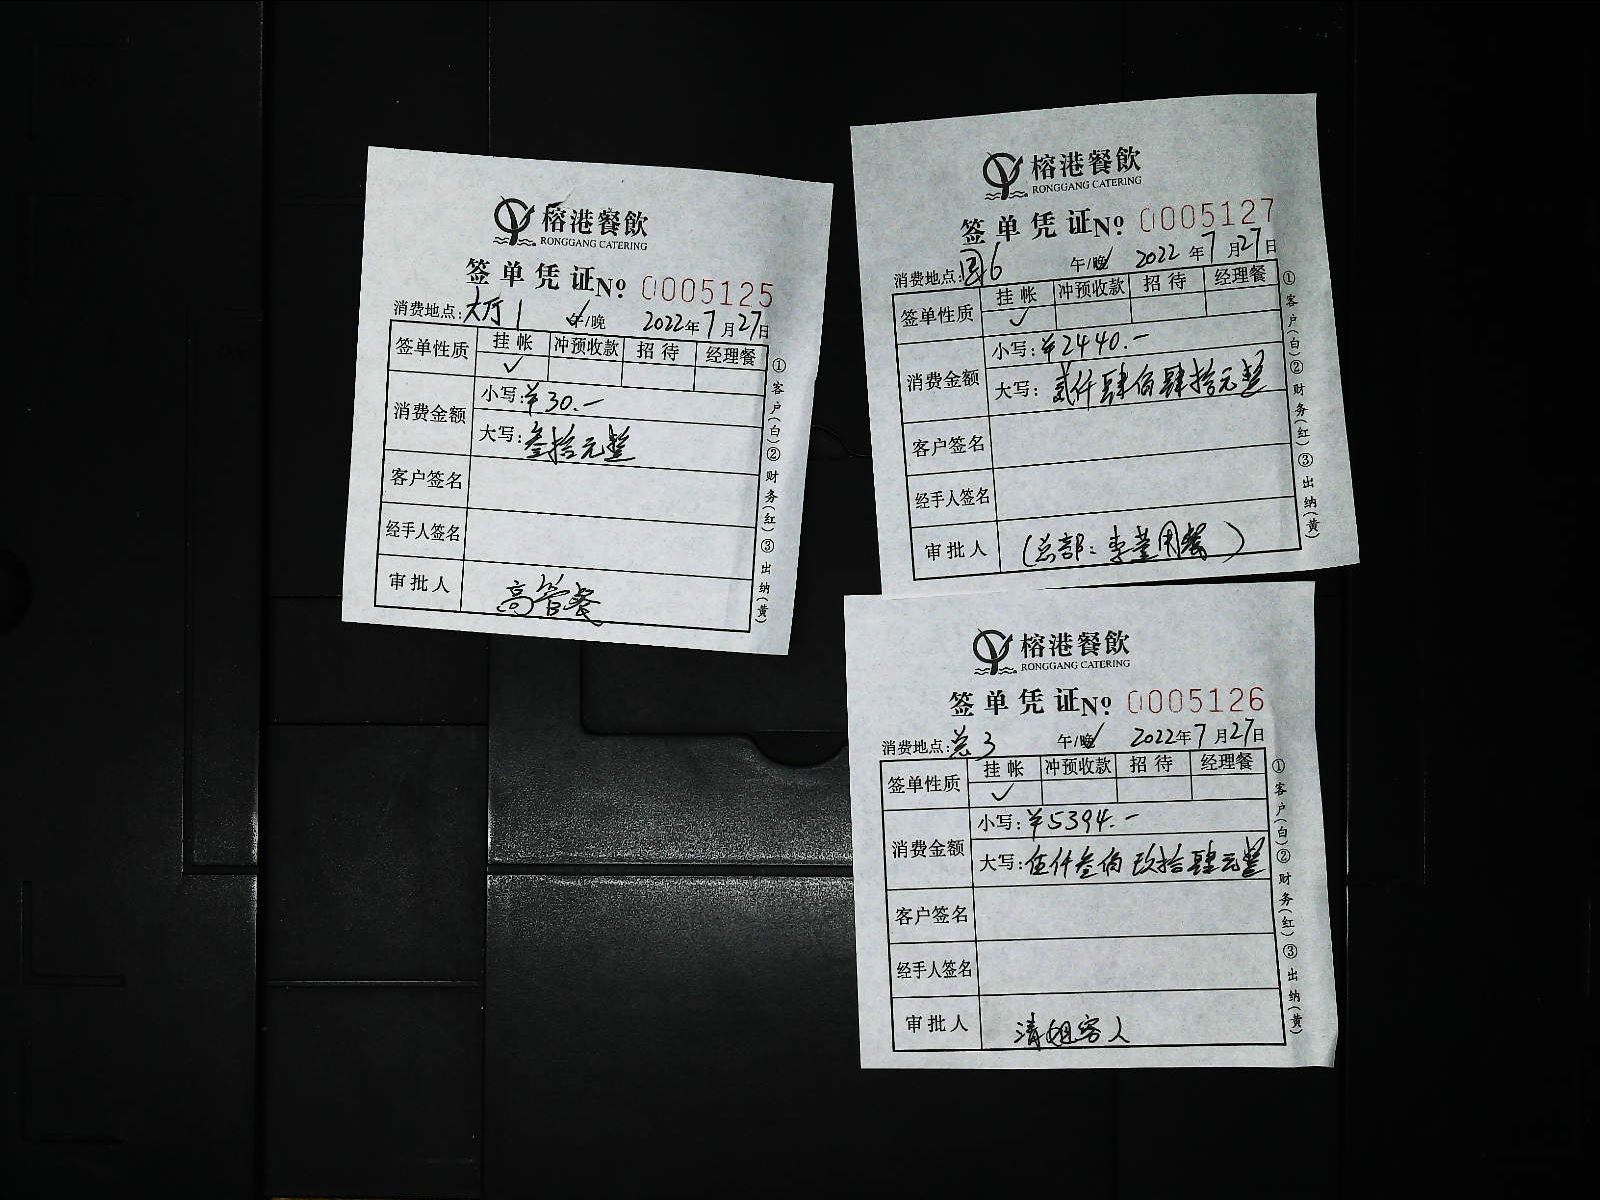 榕港餐飲
RONGGANG CATERING
签单凭证 Nº 0005125
消费地点:大厅1 午/晚 2022年7月27日
签单性质 挂帐 冲预收款 招待 经理餐
✓
消费金额 小写:¥30.—
大写:叁拾元整
客户签名
经手人签名
审批人 高管餐
①客户(白)②财务(红)③出纳(黄)
榕港餐飲
RONGGANG CATERING
签单凭证 Nº 0005127
消费地点:国6 午/晚 2022年7月27日
签单性质 挂帐 冲预收款 招待 经理餐
✓
消费金额 小写:¥2440.—
大写:贰仟肆佰肆拾元整
客户签名
经手人签名
审批人 (总部:李董用餐)
①客户(白)②财务(红)③出纳(黄)
榕港餐飲
RONGGANG CATERING
签单凭证 Nº 0005126
消费地点:总3 午/晚 2022年7月27日
签单性质 挂帐 冲预收款 招待 经理餐
✓
消费金额 小写:¥5394.—
大写:伍仟叁佰玖拾肆元整
客户签名
经手人签名
审批人 清姐客人
①客户(白)②财务(红)③出纳(黄)